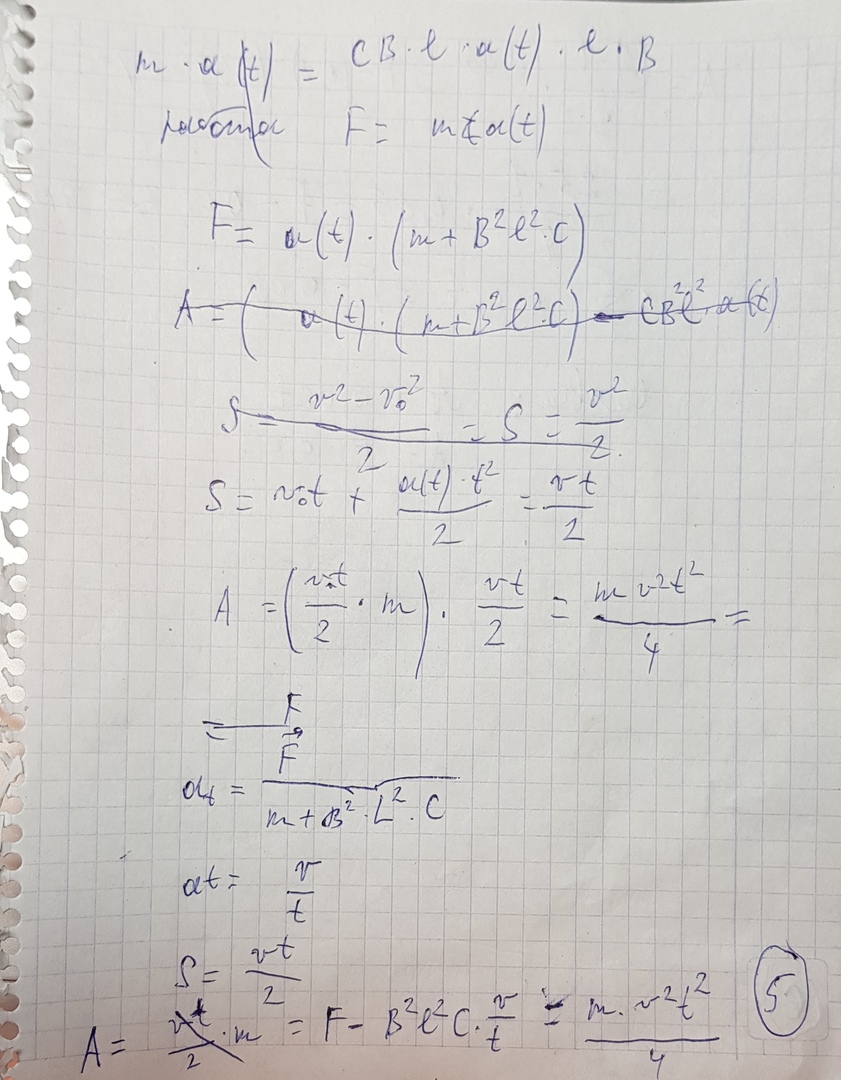 m · a(t) = CB · l · a(t) · l · B
работа F = m a(t)
F = a(t) · (m + B² l² · C)
A = ( a(t) · (m + B² l² · C) - CB² l² · a(t)
S = v² - v₀² / 2 = S = v² / 2
S = v₀t + a(t) · t² / 2 = vt / 2
A = (v₀t / 2 · m) · vt / 2 = m v² t² / 4 =
= F
a_t = F / m + B² · L² · C
at = v / t
S = vt / 2
A = vt / 2 · m = F - B² l² C · v / t = m · v² t² / 4
5